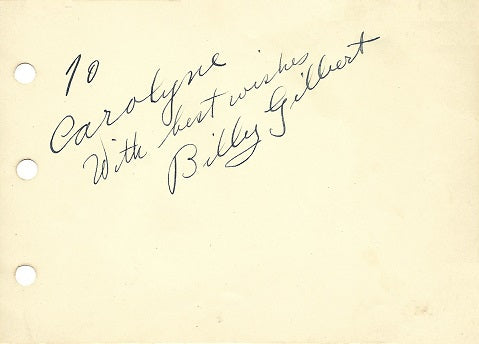 To
Carolyne
With best wishes
Billy Gilbert